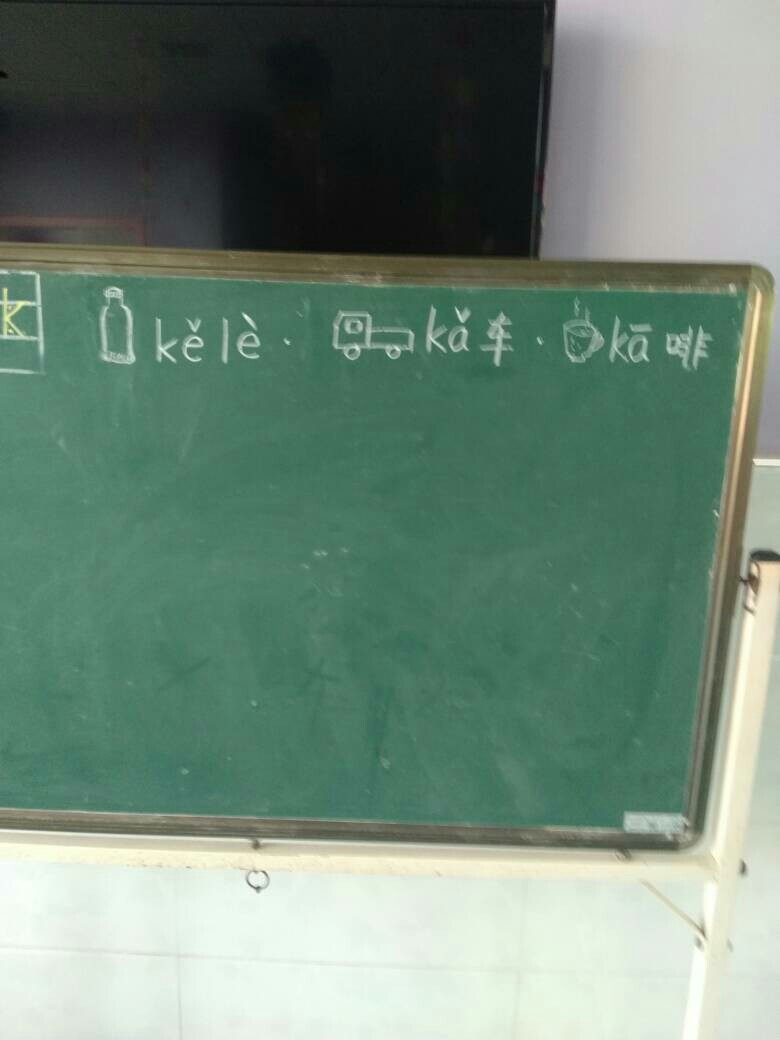 k kě lè . kǎ 车 . kā 啡